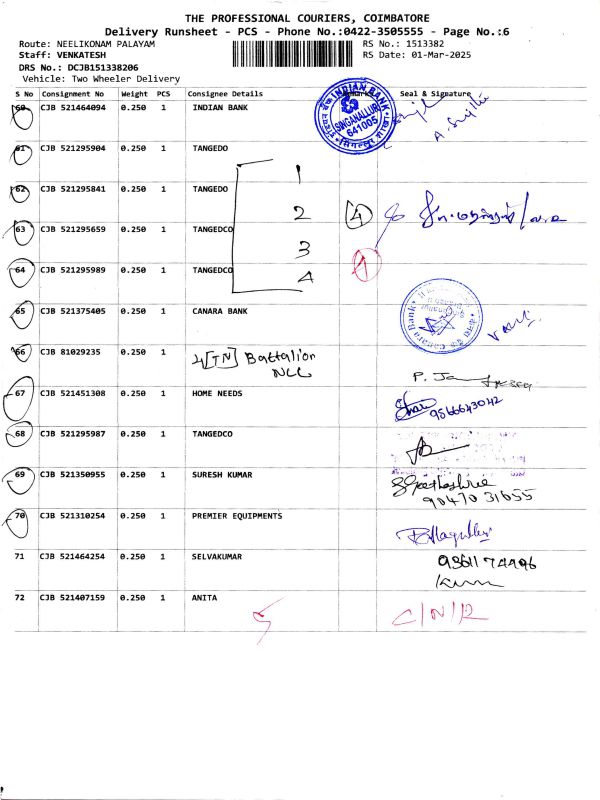 THE PROFESSIONAL COURIERS, COIMBATORE
Delivery Runsheet - PCS - Phone No.:0422-3505555 - Page No.:6
Route: NEELIKONAM PALAYAM RS No.: 1513382
Staff: VENKATESH RS Date: 01-Mar-2025
DRS No.: DCJB151338206
Vehicle: Two Wheeler Delivery
S No Consignment No Weight PCS Consignee Details Seal & Signature
60 CJB 521464094 0.250 1 INDIAN BANK
INDIAN BANK
SINGANALLUR
641005
61 CJB 521295904 0.250 1 TANGEDO 1
62 CJB 521295841 0.250 1 TANGEDO 2 4
63 CJB 521295659 0.250 1 TANGEDCO 3
64 CJB 521295989 0.250 1 TANGEDCO 4
65 CJB 521375405 0.250 1 CANARA BANK
Canara Bank
66 CJB 81029235 0.250 1 4[TN] Battalion
NCC
67 CJB 521451308 0.250 1 HOME NEEDS 9566643042
68 CJB 521295987 0.250 1 TANGEDCO
69 CJB 521350955 0.250 1 SURESH KUMAR
90470 31655
70 CJB 521310254 0.250 1 PREMIER EQUIPMENTS
71 CJB 521464254 0.250 1 SELVAKUMAR
72 CJB 521407159 0.250 1 ANITA C/N/R